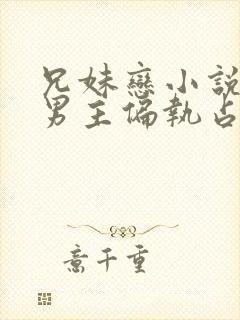 兄妹戀小說
男主偏執占
意千重